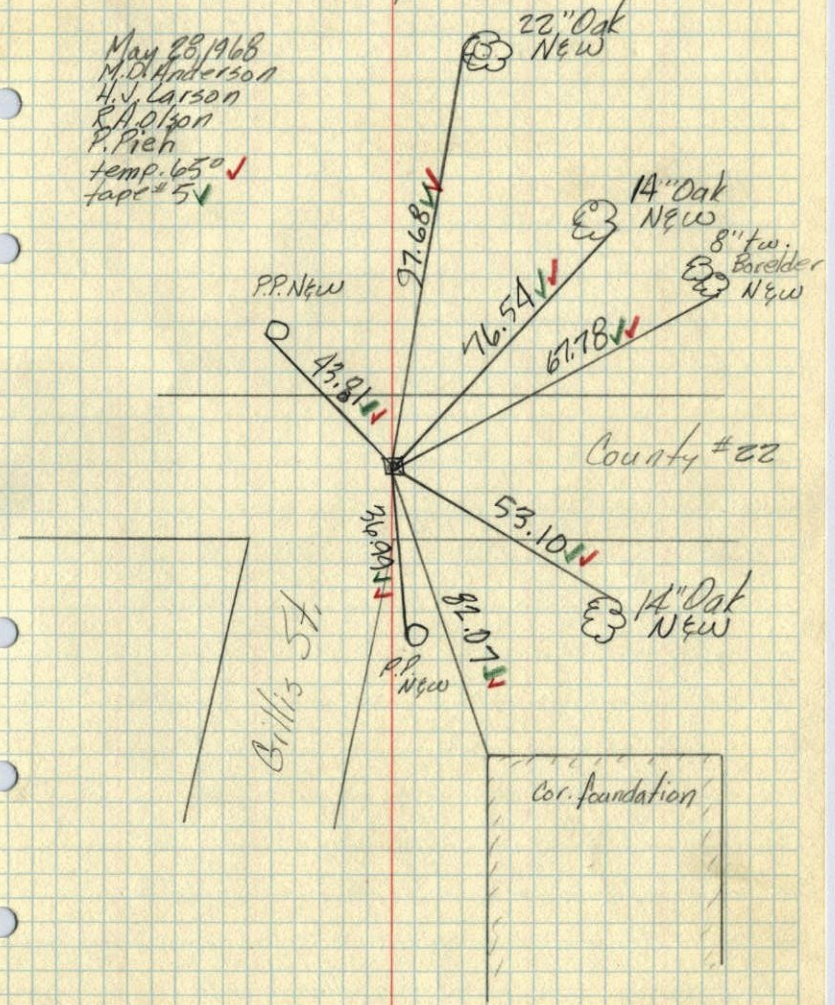 May 28, 1968
M.D. Anderson
H.J. Larson
R.A. Olson
P. Pieh
temp. 65°
tape # 5
22" Oak
N&W
97.68
14" Oak
N&W
76.54
8" tw.
Boxelder
N&W
67.78
P.P. N&W
43.81
County #22
53.10
14" Oak
N&W
36.99
P.P.
N&W
82.07
Gillis St.
Cor. foundation